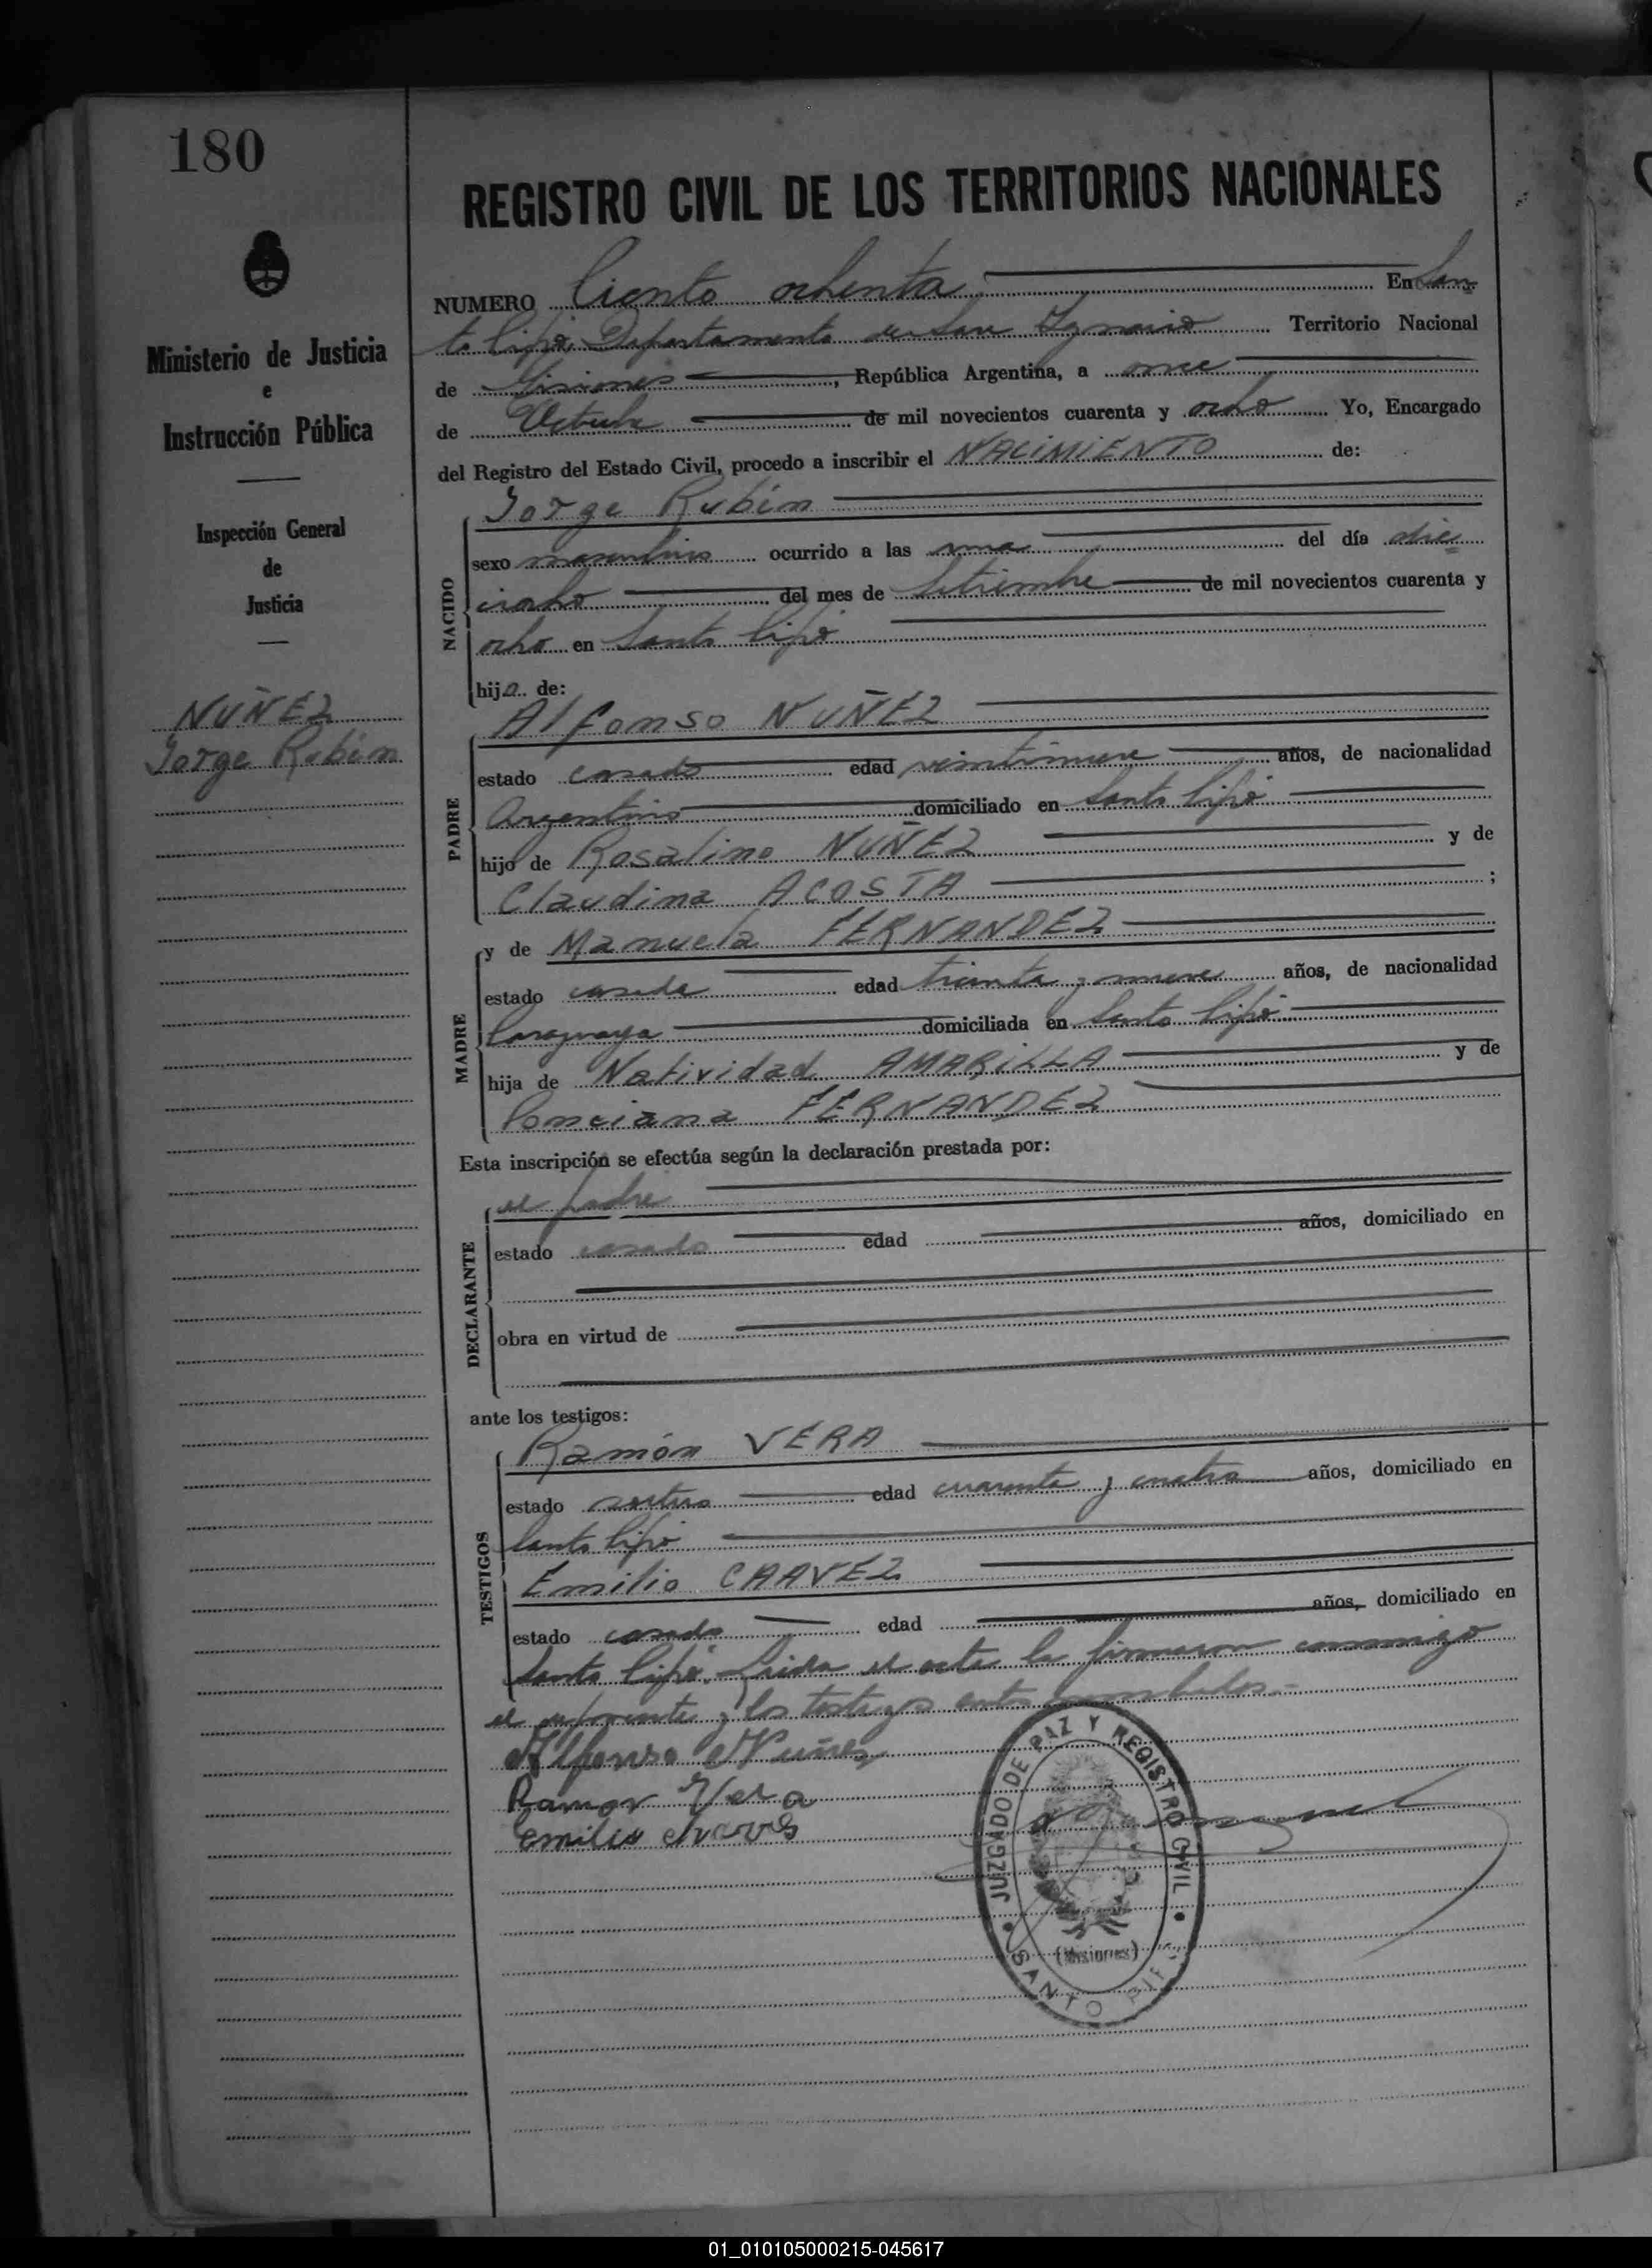 180
REGISTRO CIVIL DE LOS TERRITORIOS NACIONALES
Ministerio de Justicia
e
Instrucción Pública
Inspección General
de
Justicia
NUÑEZ
Jorge Rubén
NUMERO Ciento ochenta En San
to Pipó Departamento de San Ygnacio Territorio Nacional
de Misiones, República Argentina, a once
de Octubre de mil novecientos cuarenta y ocho Yo, Encargado
del Registro del Estado Civil, procedo a inscribir el NACIMIENTO de:
NACIDO
Jorge Rubén
sexo masculino ocurrido a las una del día diec
iocho del mes de Setiembre de mil novecientos cuarenta y
ocho en Santo Pipó
hijo de:
PADRE
Alfonso NUÑEZ
estado casado edad veintinueve años, de nacionalidad
Argentino domiciliado en Santo Pipó
hijo de Rosalino NUÑEZ y de
Claudina ACOSTA ;
MADRE
y de Manuela FERNANDEZ
estado casada edad treinta y nueve años, de nacionalidad
Paraguaya domiciliada en Santo Pipó
hija de Natividad AMARILLA y de
Ponciana FERNANDEZ
Esta inscripción se efectúa según la declaración prestada por:
DECLARANTE
el padre
estado casado edad años, domiciliado en
obra en virtud de
ante los testigos:
TESTIGOS
Ramón VERA
estado soltero edad cuarenta y cuatro años, domiciliado en
Santo Pipó
Emilio CHAVEZ
estado casado edad años, domiciliado en
Santo Pipó. Leida el acta la firmaron conmigo
el exponente y los testigos ante nombrados.-
Alfonso Nuñez
Ramon Vera
Emilio Chaves
JUZGADO DE PAZ Y REGISTRO CIVIL
(Misiones)
SANTO PIPÓ
01_010105000215-045617